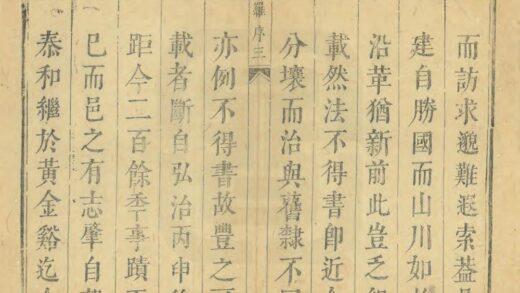 而訪求邈難遐索葢
建自勝國而山川如
沿革猶新前此豈乏
載然法不得書即近
分壤而治與舊隸不
羅序三
亦例不得書故豐之
載者斷自弘治丙申
距今二百餘秊事蹟
已而邑之有志肇自
泰和繼於黃金谿迄